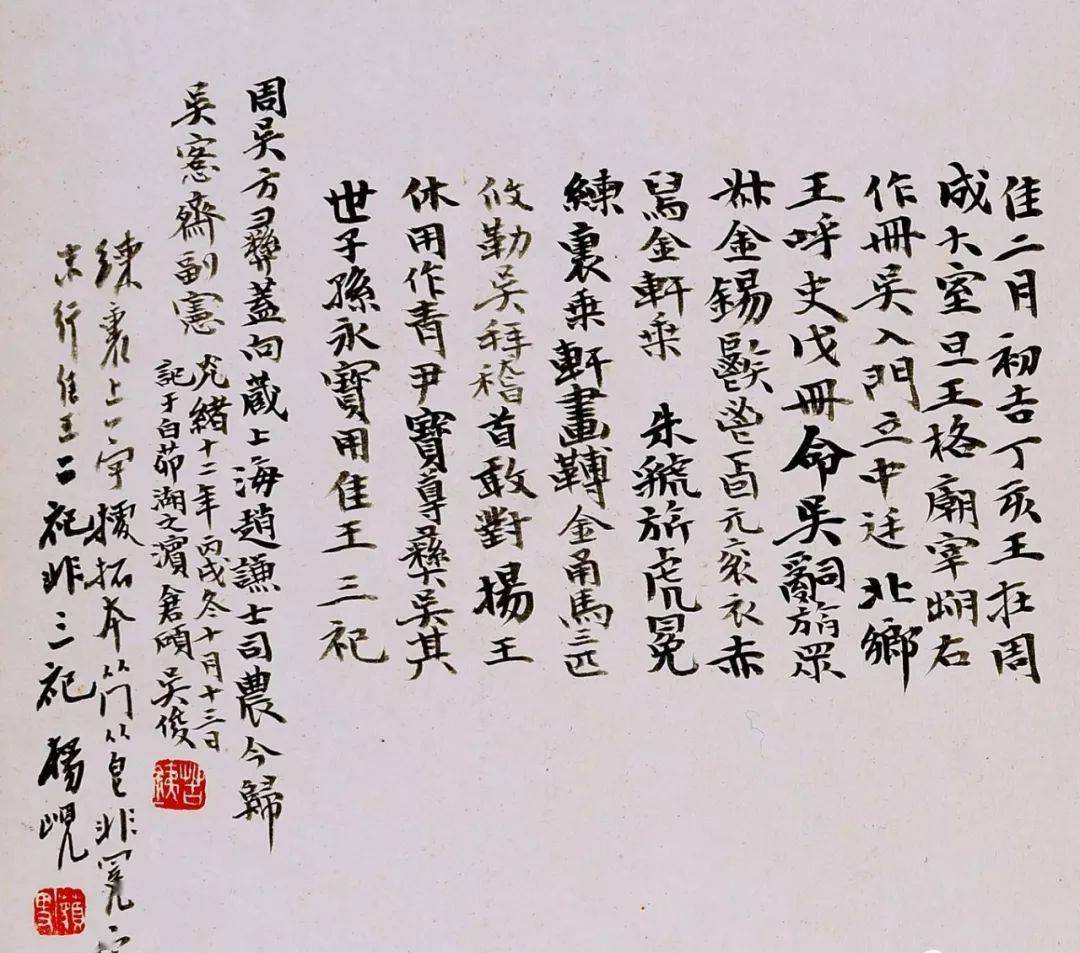 隹二月初吉丁亥王在周
成大室旦王格廟宰朏右
作冊吳入門立中廷北鄉
王呼史戊冊命吳嗣旃眾
叔金錫鬯卣元袞衣赤
舄金軒乘 朱虢旂虎冕
練裏乘軒畫轉金甬馬三匹
攸勒吳拜稽首敢對揚王
休用作青尹寶尊彝吳其
世子孫永寶用隹王三祀
周吳方彝蓋向藏上海趙謙士司農今歸
吳愙齋副憲 光緒十二年丙戌冬十月十三日
記于白茆湖之濱倉碩吳俊
苦鐵
練裏上一字援拓本從竹從皀非冕字
末行隹王二祀非三祀 楊峴